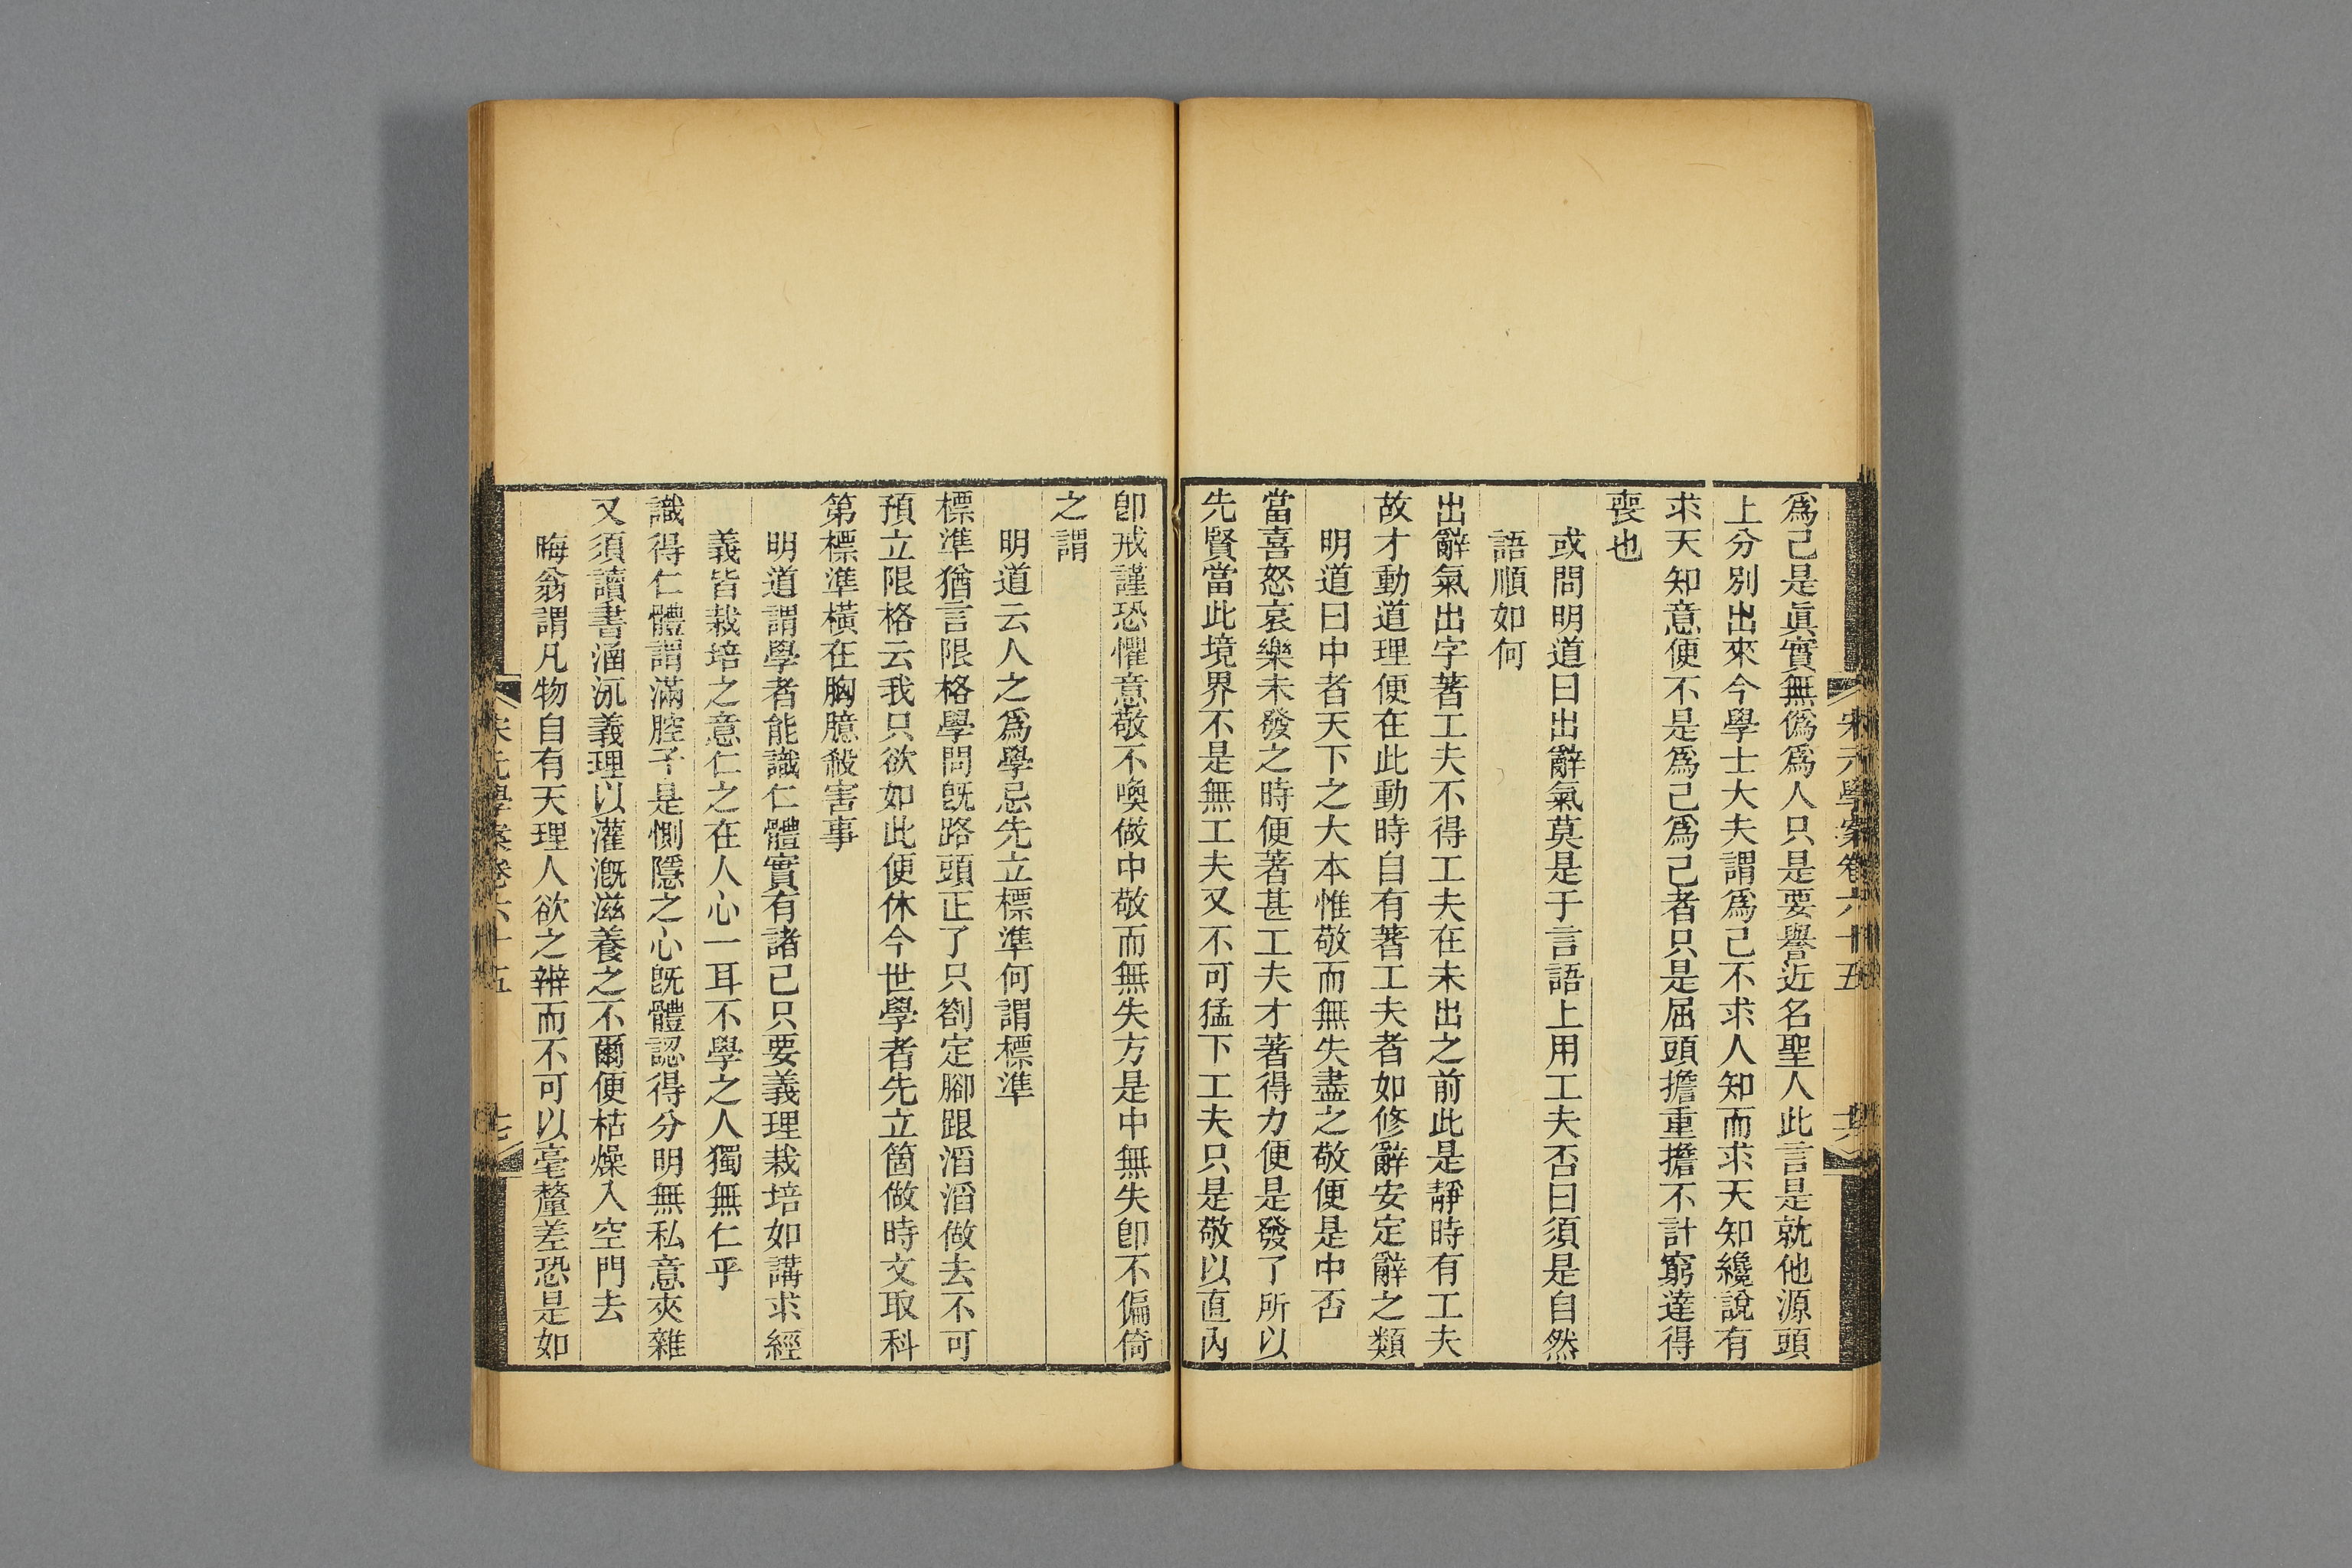 宋元學案卷六十五
六
爲己是眞實無僞爲人只是要譽近名聖人此言是就他源頭
上分別出來今學士大夫謂爲己不求人知而求天知纔說有
求天知意便不是爲己爲己者只是屈頭擔重擔不計窮達得
喪也
或問明道曰出辭氣莫是于言語上用工夫否曰須是自然
語順如何
出辭氣出字著工夫不得工夫在未出之前此是靜時有工夫
故才動道理便在此動時自有著工夫者如修辭安定辭之類
明道曰中者天下之大本惟敬而無失盡之敬便是中否
當喜怒哀樂未發之時便著甚工夫才著得力便是發了所以
先賢當此境界不是無工夫又不可猛下工夫只是敬以直內
卽戒謹恐懼意敬不喚做中敬而無失方是中無失卽不偏倚
之謂
明道云人之爲學忌先立標準何謂標準
標準猶言限格學問旣路頭正了只劄定腳跟滔滔做去不可
預立限格云我只欲如此便休今世學者先立箇做時文取科
第標準橫在胸臆殺害事
明道謂學者能識仁體實有諸己只要義理栽培如講求經
義皆栽培之意仁之在人心一耳不學之人獨無仁乎
識得仁體謂滿腔子是惻隱之心旣體認得分明無私意夾雜
又須讀書涵泳義理以灌漑滋養之不爾便枯燥入空門去
晦翁謂凡物自有天理人欲之辨而不可以毫釐差恐是如
宋元學案卷六十五
七